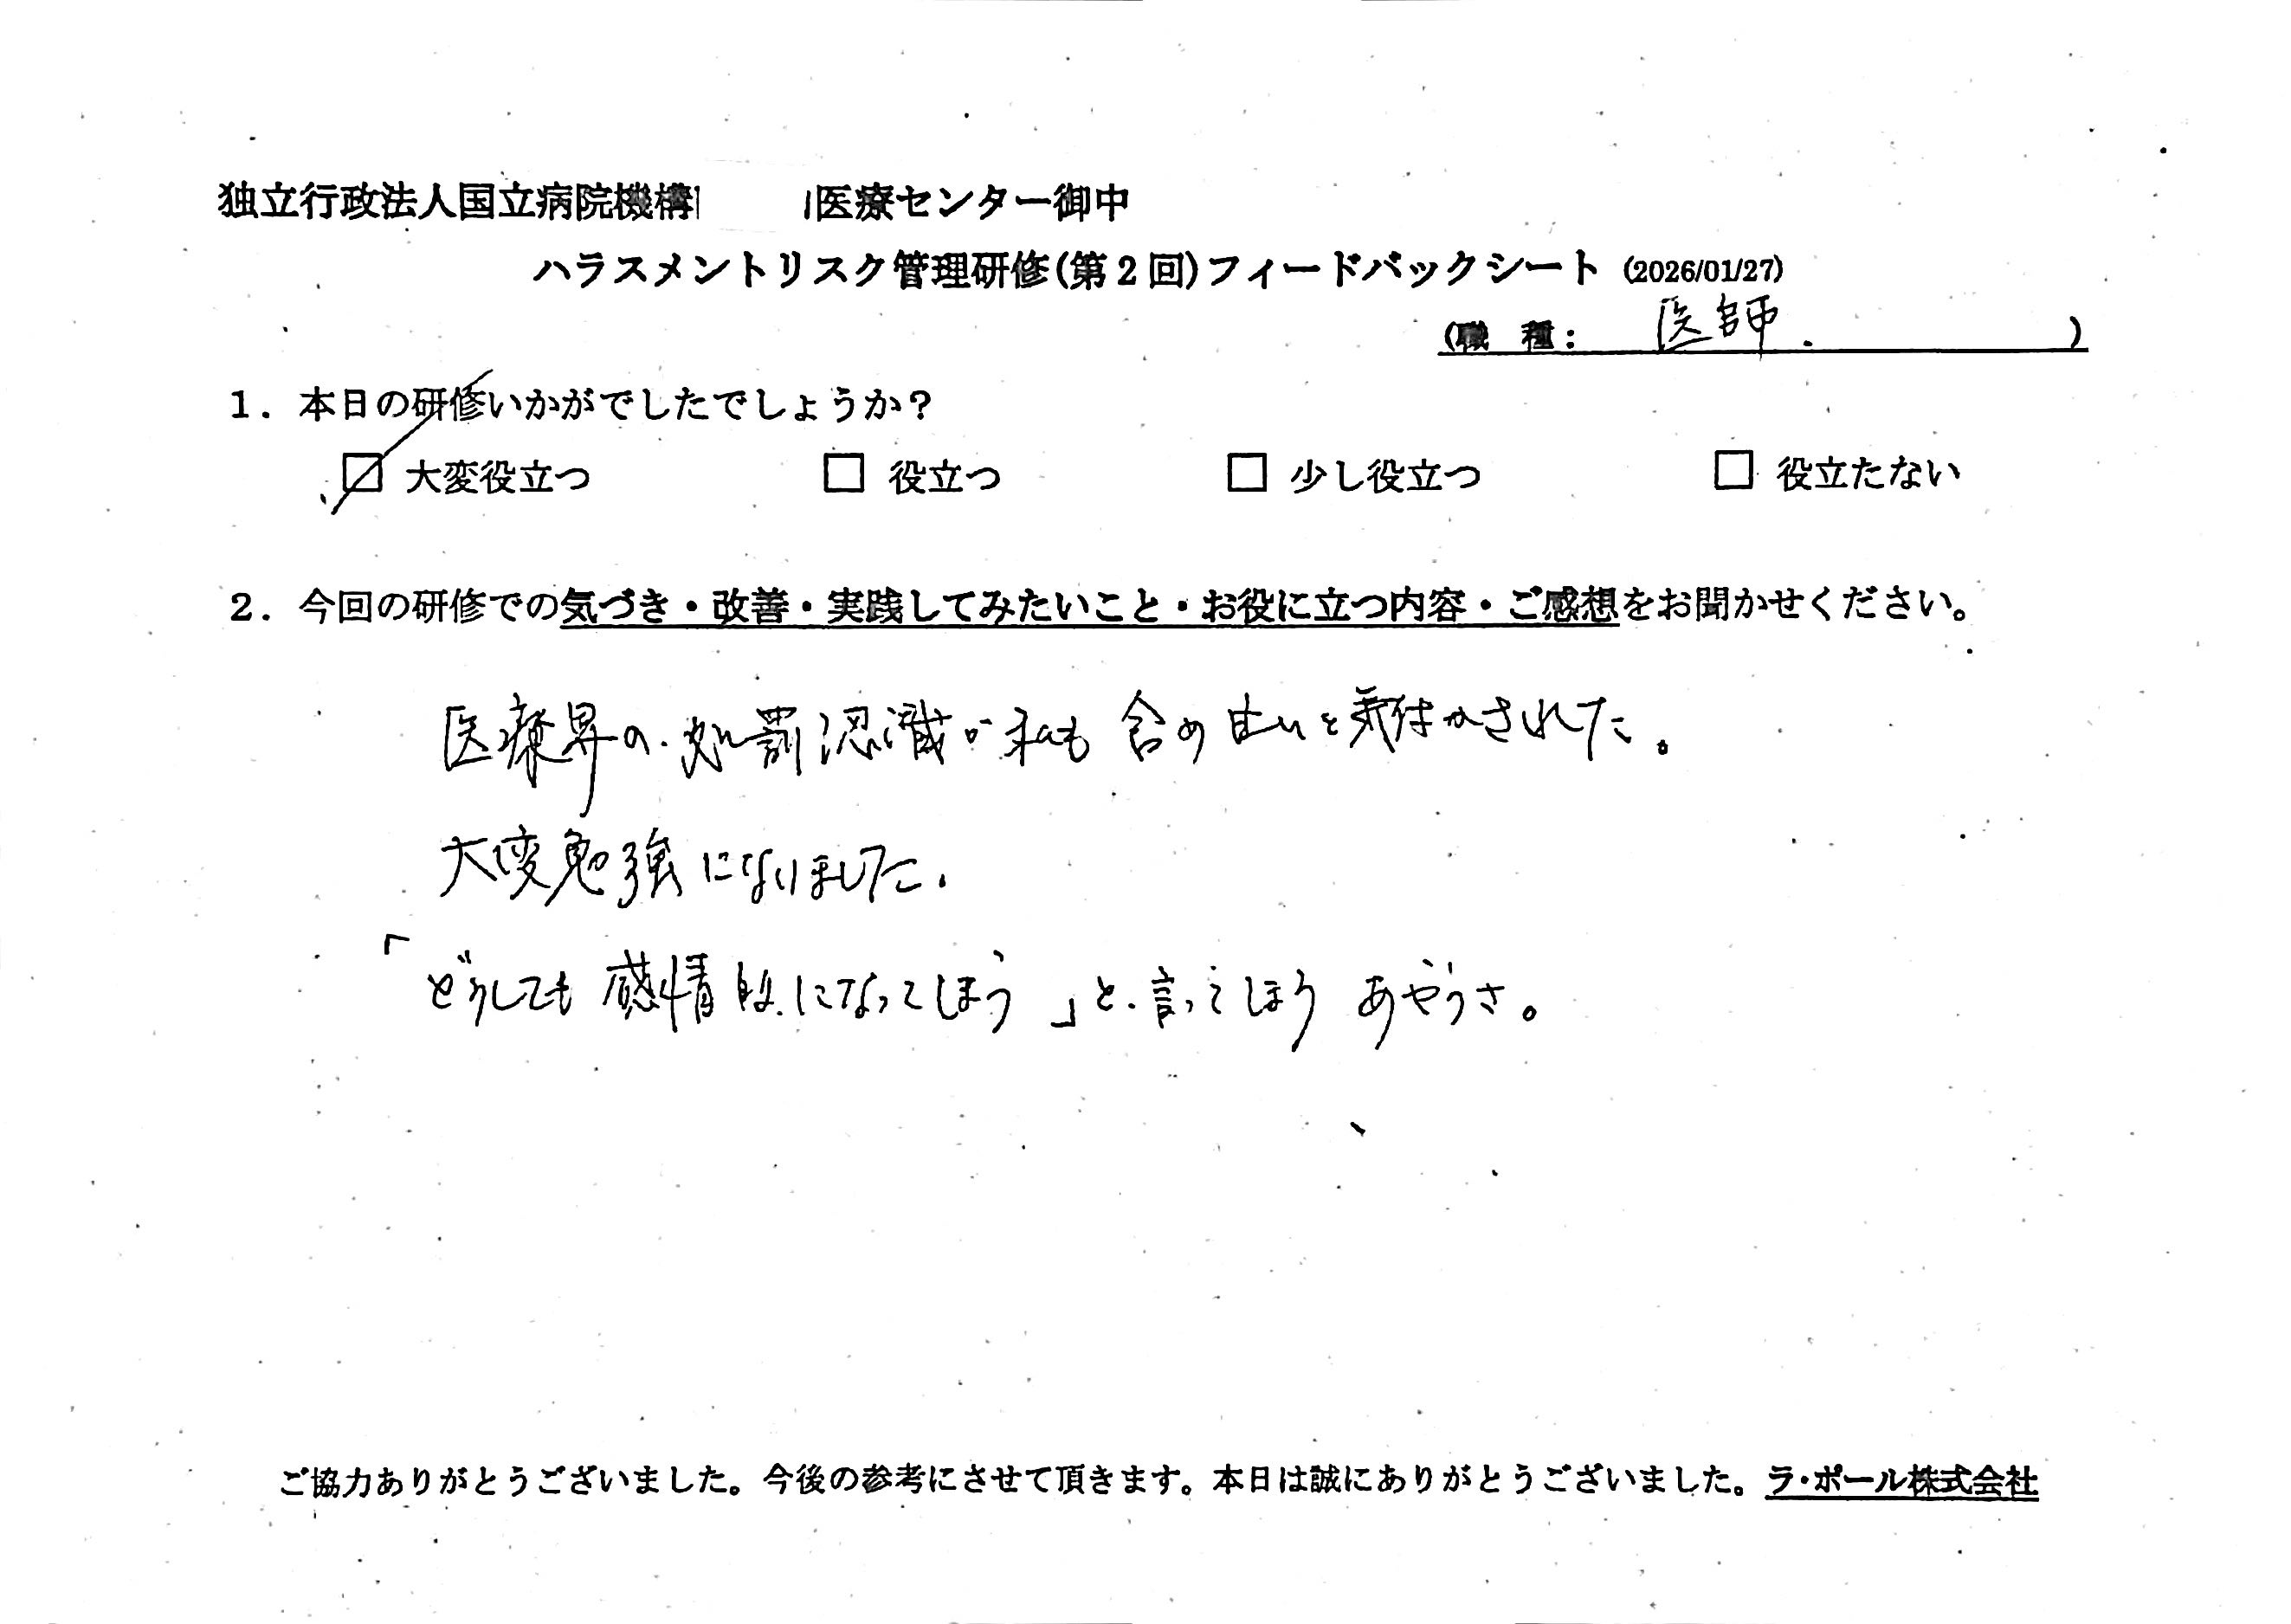 独立行政法人国立病院機構 医療センター御中
ハラスメントリスク管理研修(第2回)フィードバックシート (2026/01/27)
(職 種: 医師. )
1. 本日の研修いかがでしたでしょうか?
☑ 大変役立つ □ 役立つ □ 少し役立つ □ 役立たない
2. 今回の研修での気づき・改善・実践してみたいこと・お役に立つ内容・ご感想をお聞かせください。
医療界の処罰認識が私も含め甘いと気付かされた。
大変勉強になりました.
「どうしても感情的になってしまう」と言ってしまう あやうさ。
ご協力ありがとうございました。今後の参考にさせて頂きます。本日は誠にありがとうございました。ラ・ポール株式会社